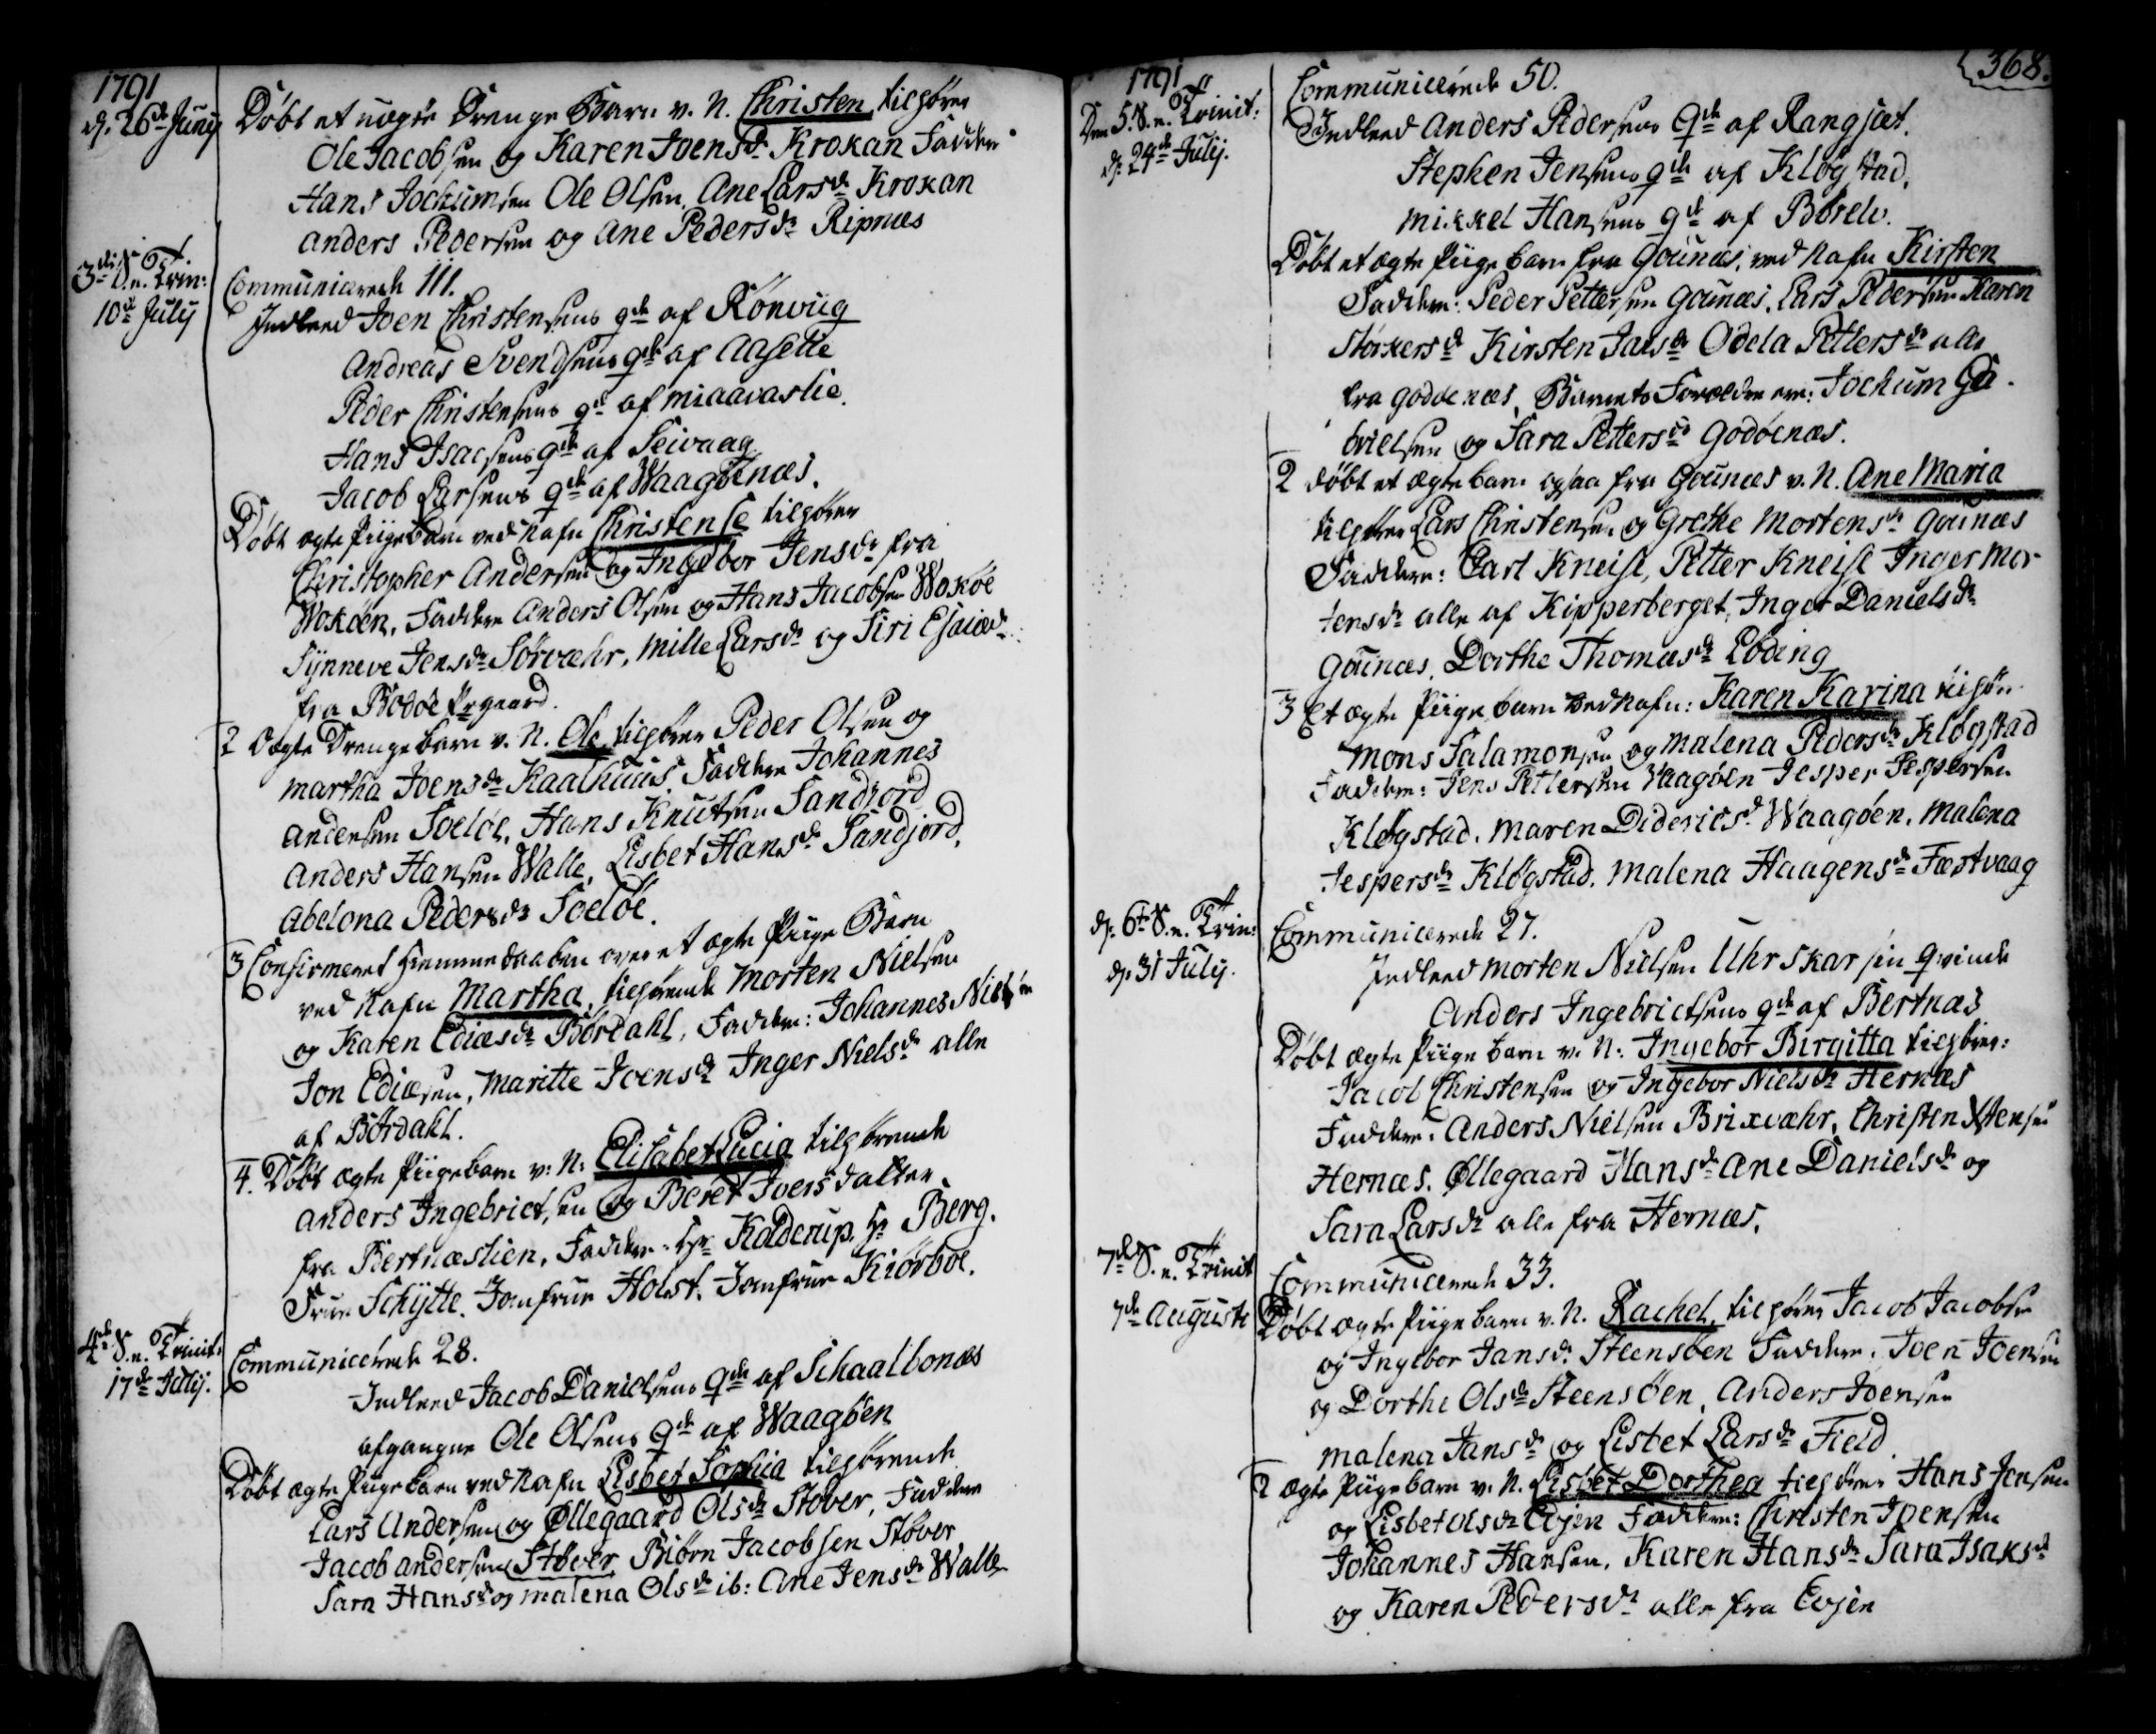 1791
d. 26de Junij
Døbt et uægte Drenge Barn v. N. Christen tilhører
Ole Jacobsen og Karen Joensdr Krokan Faddere
Hans Jochumsen Ole Olsen, Ane Larsdr Krokan
Anders Pedersen og Ane Pedersdr Ripnæs
3die S. e. Trin:
10de July
Communicerede 111.
Indleed Joen Christensens qde af Rönviig
Andreas Svendsens qde af Aaselie
Peder Christensens qde af Miaavaslie.
Hans Isacsens qde af Seivaag
Jacob Larsens qde af Waagönæs.
Døbt ægte Piigebarn ved Nafn Christense tilhører
Christopher Andersen og Ingebor Jensdr fra
Wokøen, Faddere Anders Olsen og Hans Jacobsen Wokøe
Synneve Jensdr Sörvæhr, Mille Larsdr og Siri Esaiædr
fra Bodøe Prgaard.
2 Ægte Drengebarn v. N. Ole tilhører Peder Olsen og
Martha Joensdr Kaalhuus, Faddere Johannes
Andersen Soeløe, Hans Knutsen Sandjord
Anders Hansen Walle, Lisbet Hansdr Sandjord,
Abelona Pedersdr Soeløe.
3 Confirmeret Hiemmedaaben over et ægte Piige Barn
ved Nafn Martha, tilhørende Morten Nielsen
og Karen Ediæsdr Børdahl, Faddere: Johannes Nielsen
Jon Ediæsen, Maritte Joensdr Inger Nielsdr alle
af Børdahl.
4. Døbt ægte Piigebarn v: N: Elisabet Lucia tilhørende
Anders Ingebrictsen og Beret Iversdatter
fra Bertnæslien, Faddere: Hr Kolderup, Hr Berg.
Frue Schytte, Jomfrue Holst, Jomfrue Kiørboe.
4de S. e. Trinit:
17de Julij.
Communicerede 28.
Indleed Jacob Danielsens Qde af Schaalbonæs
afgangne Ole Olsens Qde af Waagöen
Døbt ægte Piigebarn ved Nafn Lisbet Sophia tilhørende
Lars Andersen og Øllegaard Olsdr Støver, Faddere
Jacob Andersen Støver, Biørn Jacobsen Støver
Sara Hansdr og Malena Olsdr ib: Ane Jensdr Walle
368.
1791
Den 5. S. e. Trinit:
d. 24de Julij.
Communicerede 50.
Indleed Anders Pedersens Qde af Rangsæt.
Stephen Jensens qde af Kløgstad,
Mikkel Hansens qde af Børelv.
Døbt et ægte Piige barn fra Gounæs, ved Nafn Kirsten
Faddere: Peder Pettersen Gounæs, Lars Pedersen Karen
Størkersdr Kirsten Jansdr Odela Pettersdr alle
fra Godøenæs, Barnets Forældre ere: Jochum Ga-
brielsen og Sara Pettersdr Godøenæs.
2 døbt et ægte barn ogsaa fra Gounæs v. N. Ane Maria
tilhører Lars Christensen og Grethe Mortensdr Gounæs
Faddere: Carl Kneise, Petter Kneise Inger Mor-
tensdr alle af Kipperberget, Inger Danielsdr
Gounæs, Dorthe Thomasdr Löding
3 Et ægte Piige barn ved Nafn: Karen Karina tilhører
Mons Salamonsen og Malena Pedersdr Kløgstad
Faddere: Jens Pettersen Waagøen Jesper Jespersen
Kløgstad. Maren Didericsdr Waagøen, Malena
Jespersdr Kløgstad. Malena Haagensdr Fæstvaag
d. 6te S. e. Trin:
d. 31 July.
Communicerede 27.
Indleed Morten Nielsen Uhrskar sin Qvinde
Anders Ingebrictsens qde af Bertnæs
Døbt ægte Piige barn v. N: Ingebor Birgitta tilhører:
Jacob Christensen og Ingebor Nielsdr Hernæs
Faddere: Anders Nielsen Brixvæhr, Christen Xstensen
Hernæs. Øllegaard Hansdr Ane Danielsdr og
Sara Larsdr alle fra Hernæs.
7de S. e. Trinit
7de Augusti
Communicerede 33.
Døbt ægte Piige barn v. N. Rachel, tilhører Jacob Jacobsen
og Ingebor Jansdr Steensöen Faddere: Joen Joensen
og Dorthe Olsdr Steensöen, Anders Joensen
Malena Jansdr og Lisbet Larsdr Field
2 ægte Piigebarn v. N. Lisbet Dorthea tilhører Hans Jensen
og Lisbet Olsdr Evjen Faddere: Christen Joensen
Johannes Hansen, Karen Hansdr Sara Isaksdr
og Karen Pedersdr alle fra Evjen